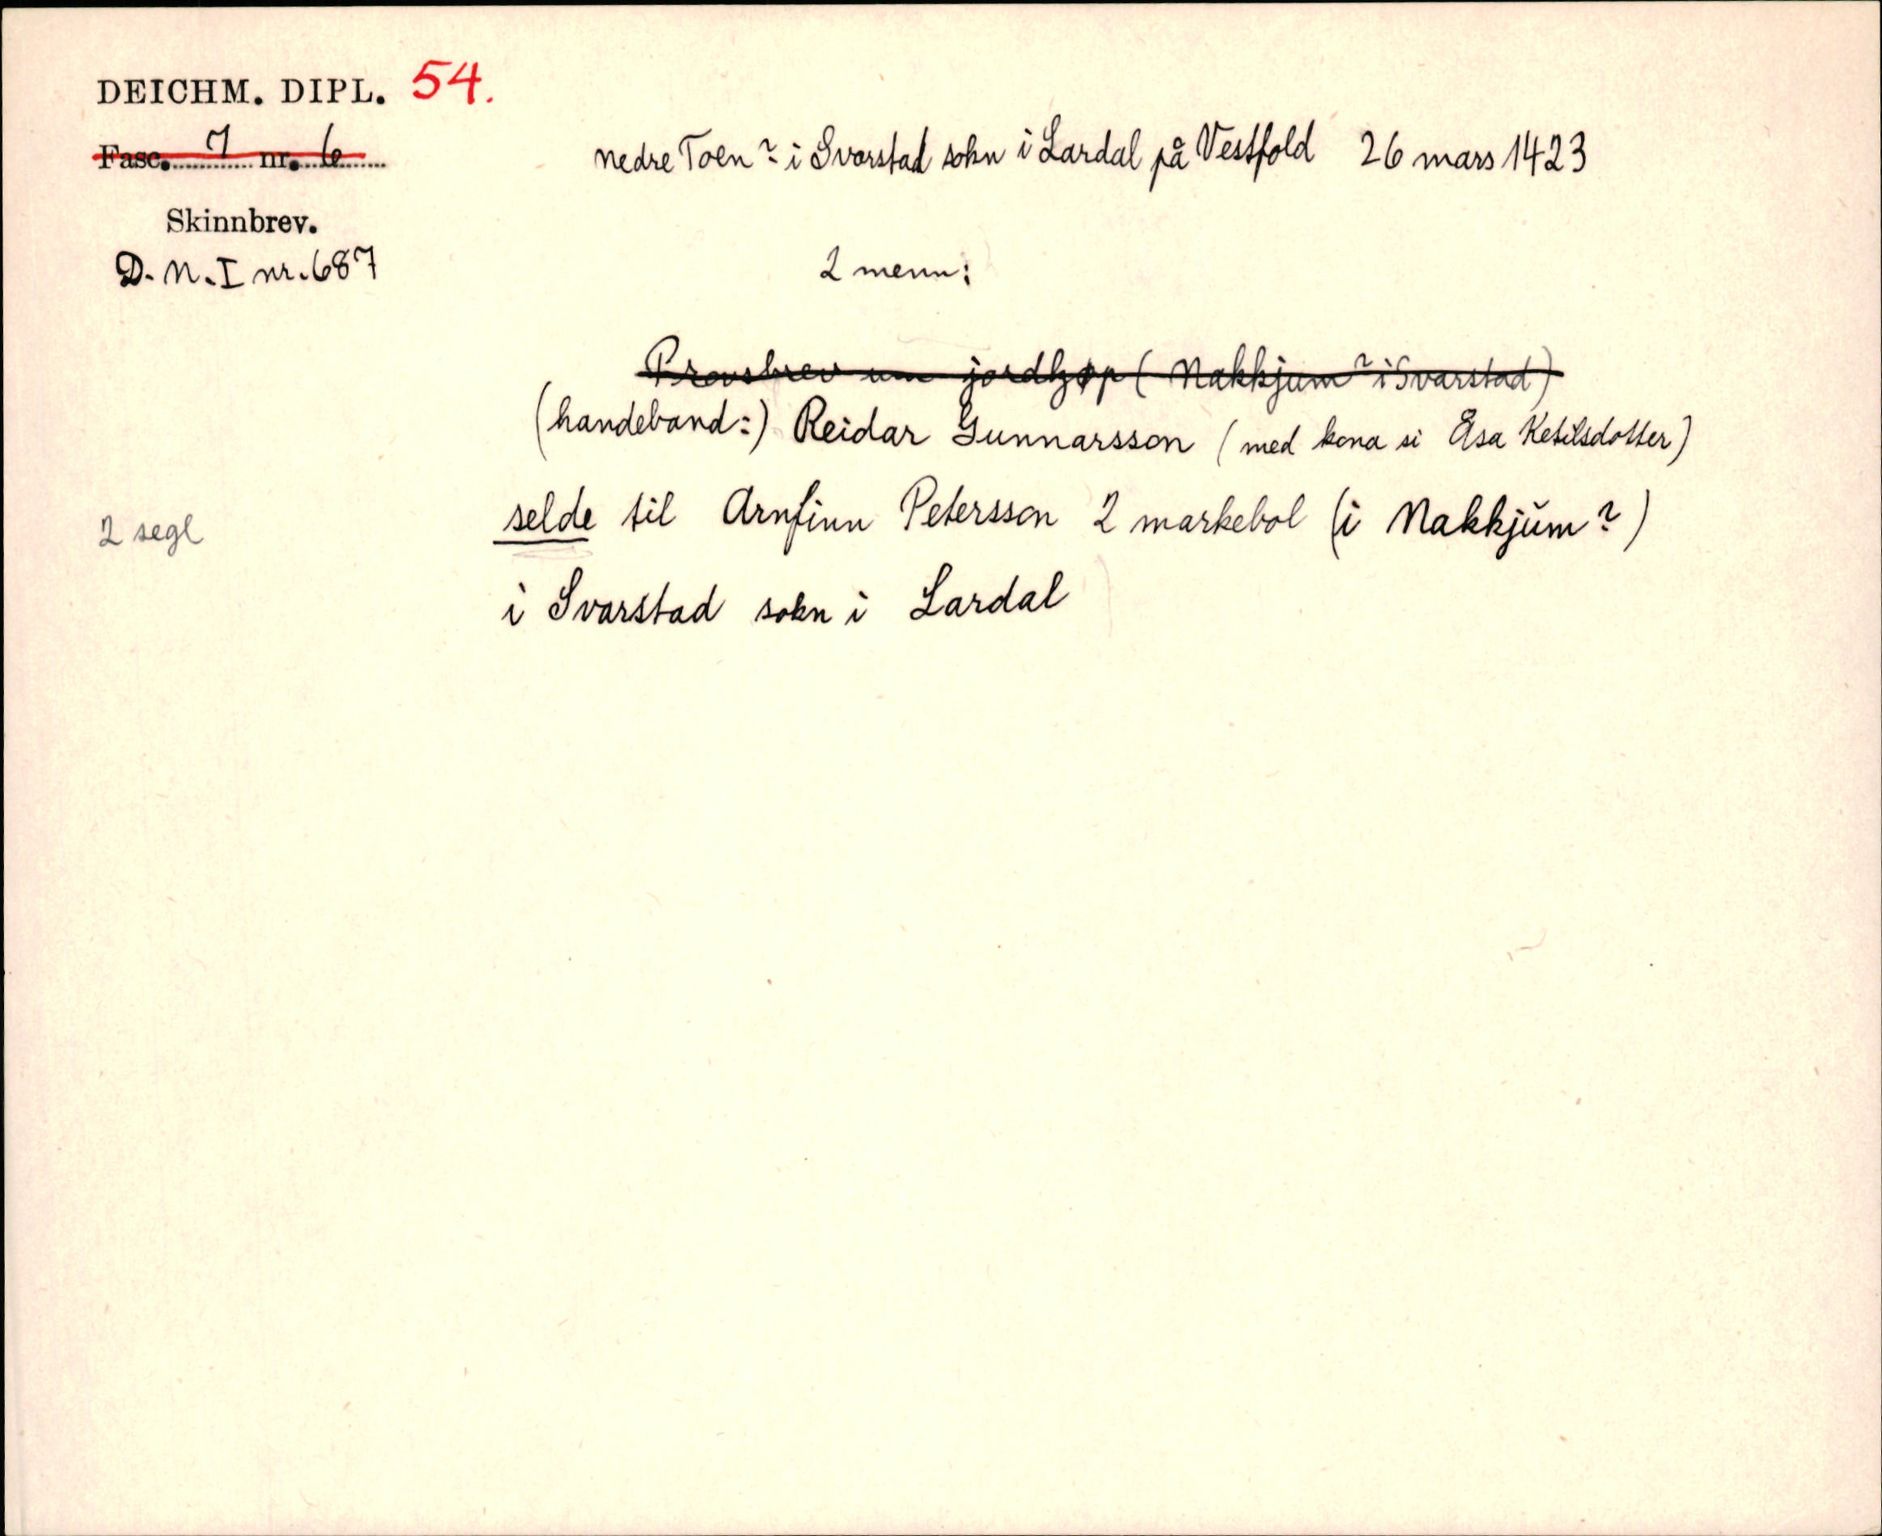 DEICHM. DIPL. 54.
Fasc. 7 nr. 6
Skinnbrev.
D. N. I nr. 687
nedre Toen? i Svarstad sokn i Lardal på Vestfold 26 mars 1423
2 menn:
Provsbrev um jordkjøp (Nakkjum? i Svarstad)
(handeband:) Reidar Gunnarsson (med kona si Åsa Ketilsdotter)
selde til Arnfinn Petersson 2 markebol (i Nakkjŭm?)
2 segl
i Svarstad sokn i Lardal